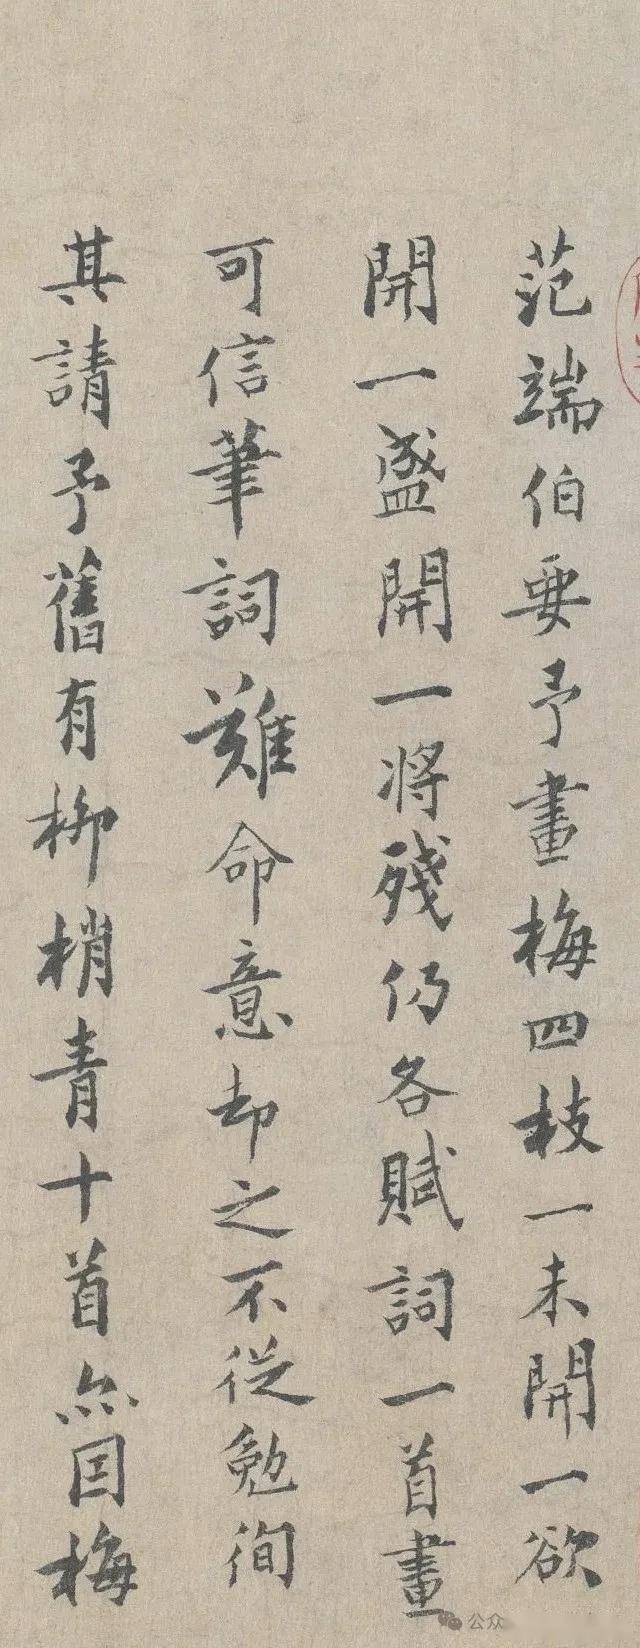 范端伯要予畫梅四枝一未開一欲
開一盛開一將殘仍各賦詞一首畫
可信筆詞難命意却之不從勉徇
其請予舊有柳梢青十首亦因梅
公众